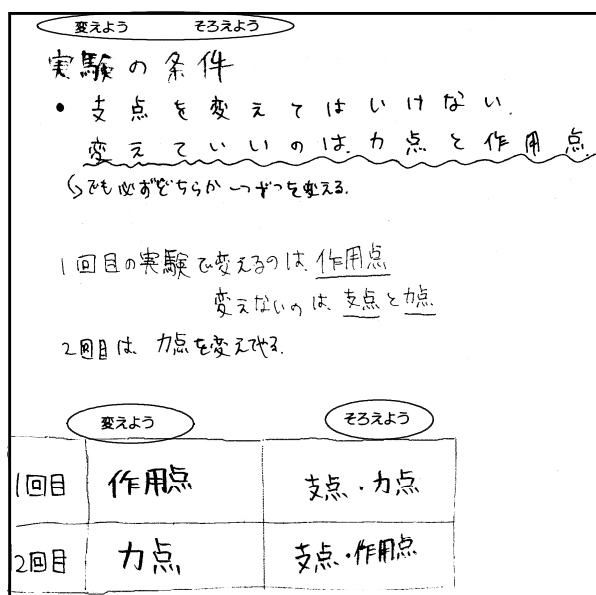 変えよう　そろえよう
実験の条件
・支点を変えてはいけない。
変えていいのは、力点と作用点。
↳でも必ずどちらか一つずつを変える。
1回目の実験で変えるのは、作用点
変えないのは、支点と力点
2回目は、力点を変えてやる。
変えよう　そろえよう
1回目　作用点　支点・力点
2回目　力点　支点・作用点